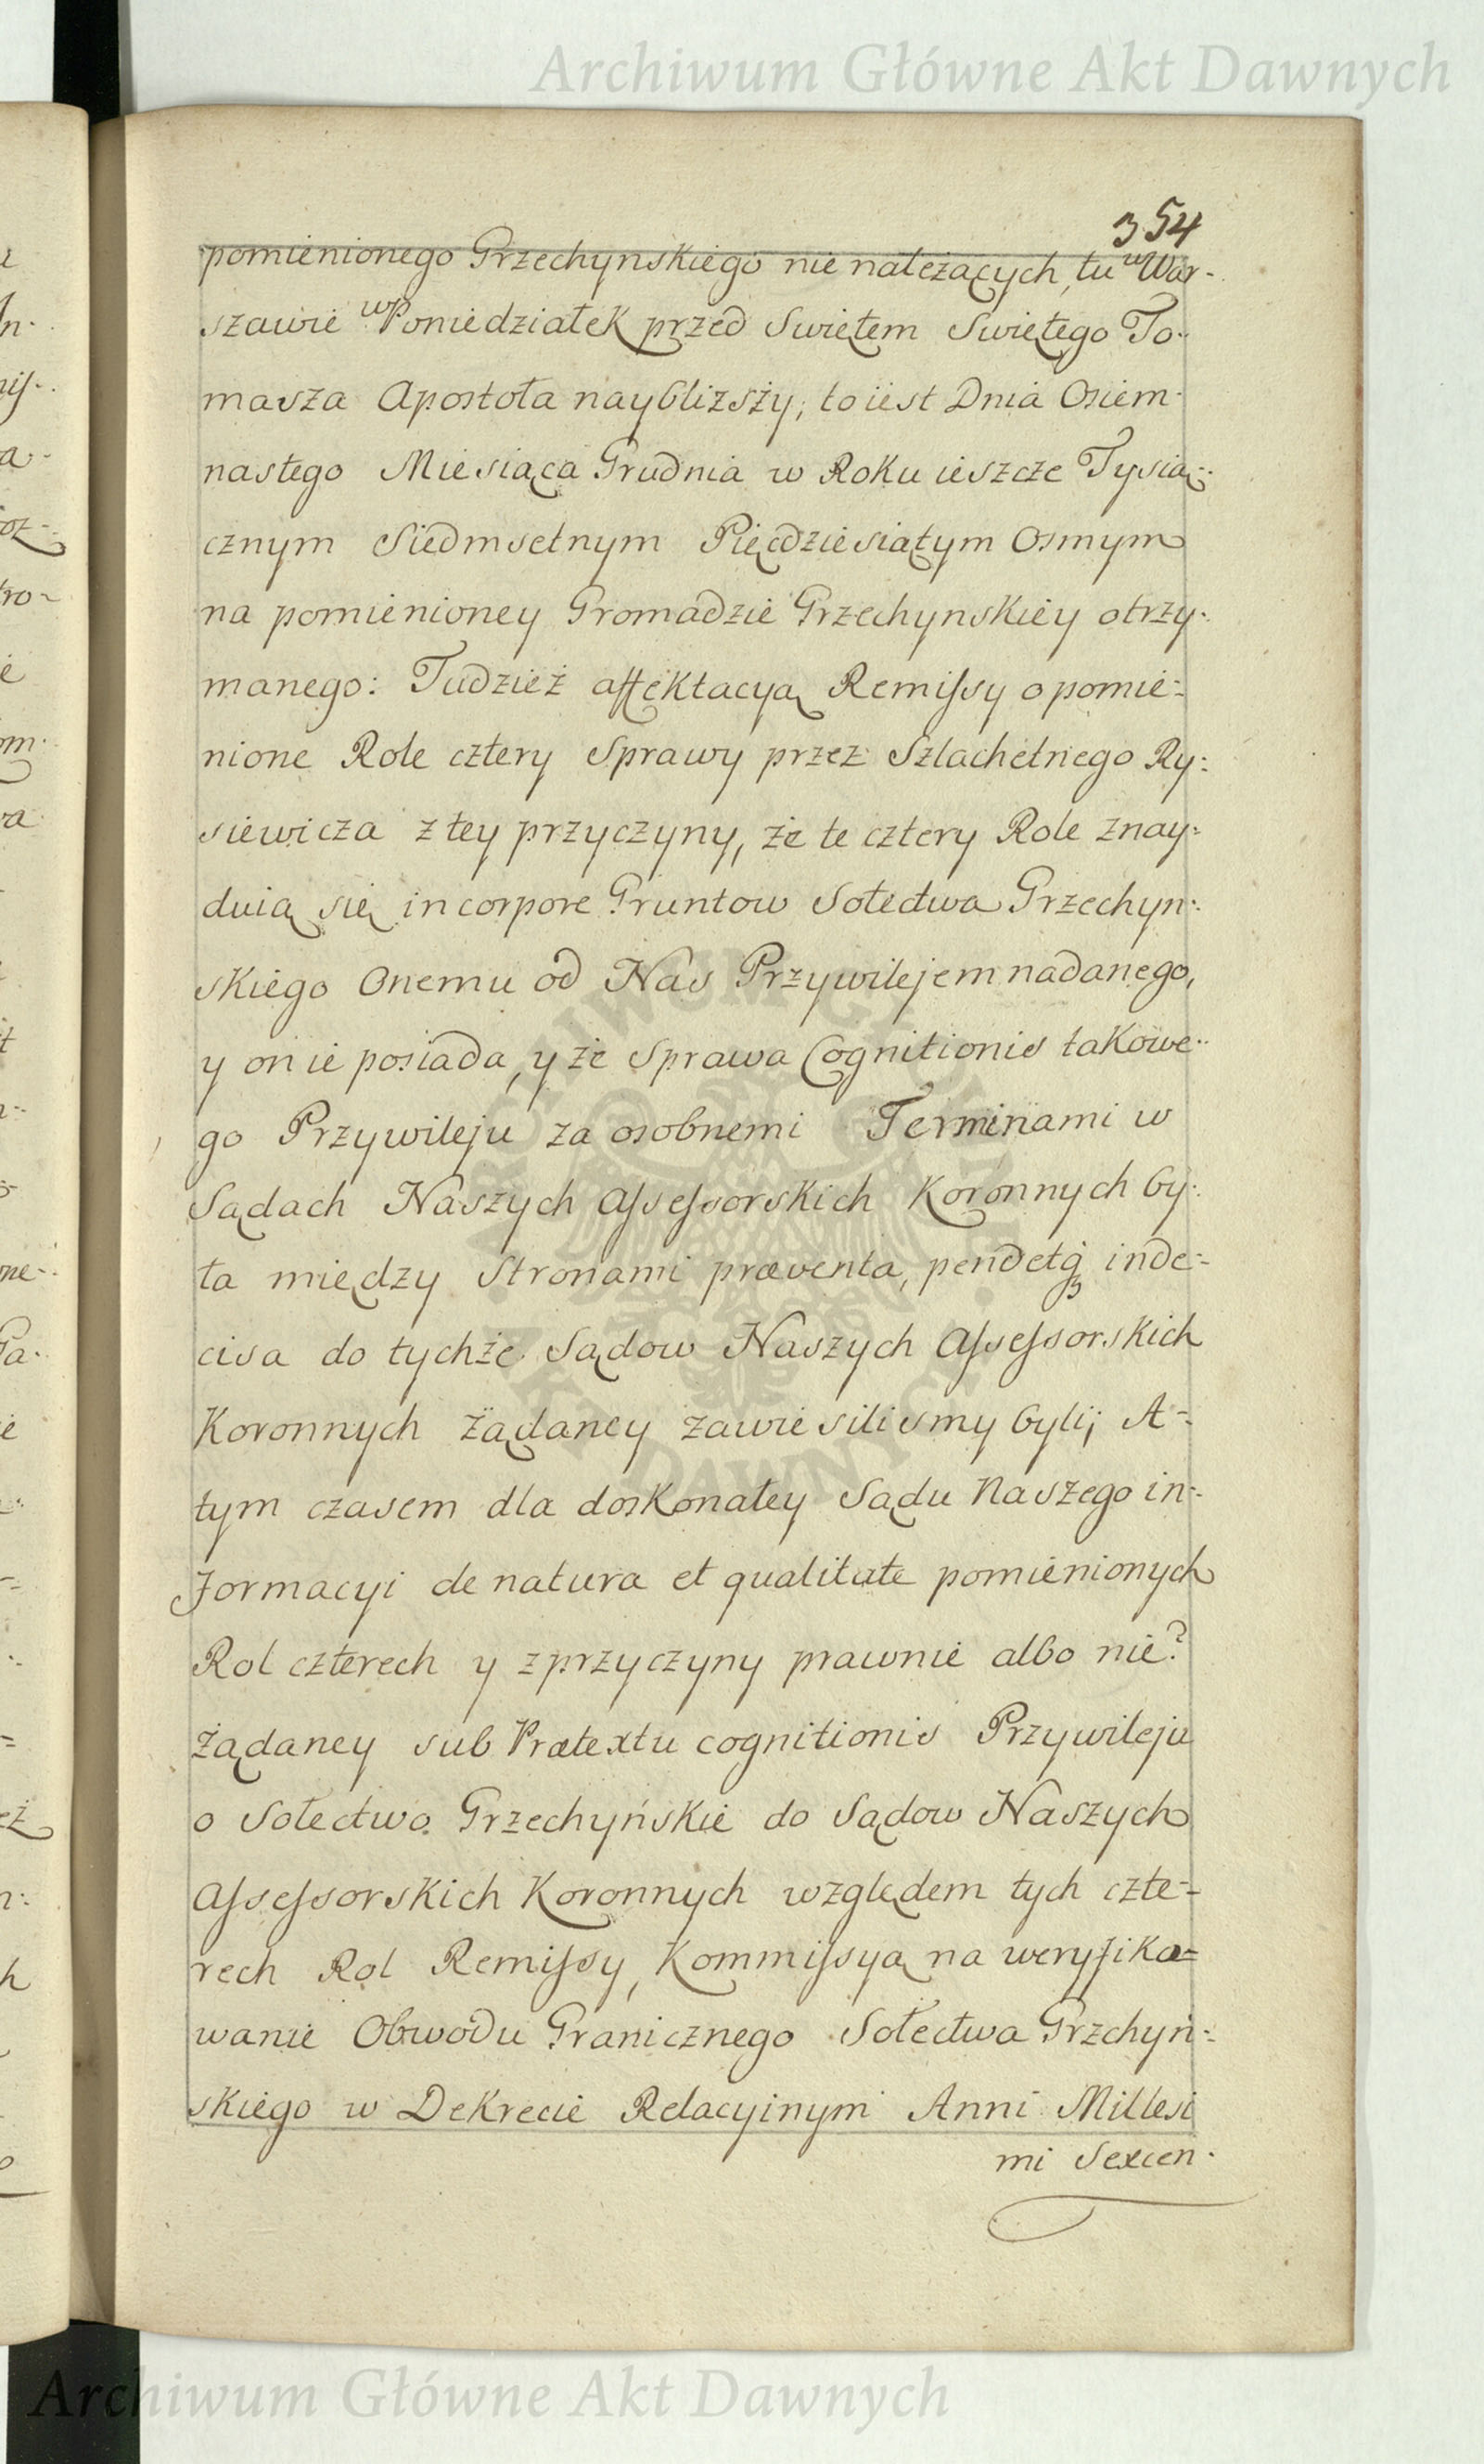 Archiwum Główne Akt Dawnych
354
pomienionego Grzechynskiego nie należących, tu w War-
szawie w Poniedziałek przed Swiętem Swiętego To-
masza Apostoła naybliższy, to iest Dnia Osiem-
nastego Miesiąca Grudnia w Roku ieszcze Tysią-
cznym Siedmsetnym Pięćdziesiątym Osmym
na pomienioney Gromadzie Grzechynskiey otrzy-
manego: Tudzież affektacyą Remissy o pomie-
nione Role cztery Sprawy przez Szlachetnego Ry-
siewicza z tey przyczyny, że te cztery Role znay-
duią się in corpore Gruntow Sołectwa Grzechyn-
skiego Onemu od Nas Przywilejem nadanego,
y on ie posiada, y że Sprawa Cognitionis takowe-
go Przywileju za osobnemi Terminami w
Sądach Naszych Assessorskich Koronnych by-
ła między Stronami præventa, pendetq3 inde-
cisa do tychże Sądow Naszych Assessorskich
Koronnych żądaney zawiesilismy byli; A-
tym czasem dla doskonałey Sądu Naszego in-
formacyi de natura et qualitate pomienionych
Rol czterech y z przyczyny prawnie albo nie?
żądaney sub Prætextu cognitionis Przywileju
o Sołectwo Grzechyńskie do Sądow Naszych
Assessorskich Koronnych względem tych czte-
rech Rol Remissy, Kommissyą na weryfika=
wanie Obwodu Granicznego Sołectwa Grzchyń-
skiego w Dekrecie Relacyinym Anni Millesi
mi Sexcen-
ARCHIWUM GŁÓWNE • AKT DAWNYCH •
Archiwum Główne Akt Dawnych